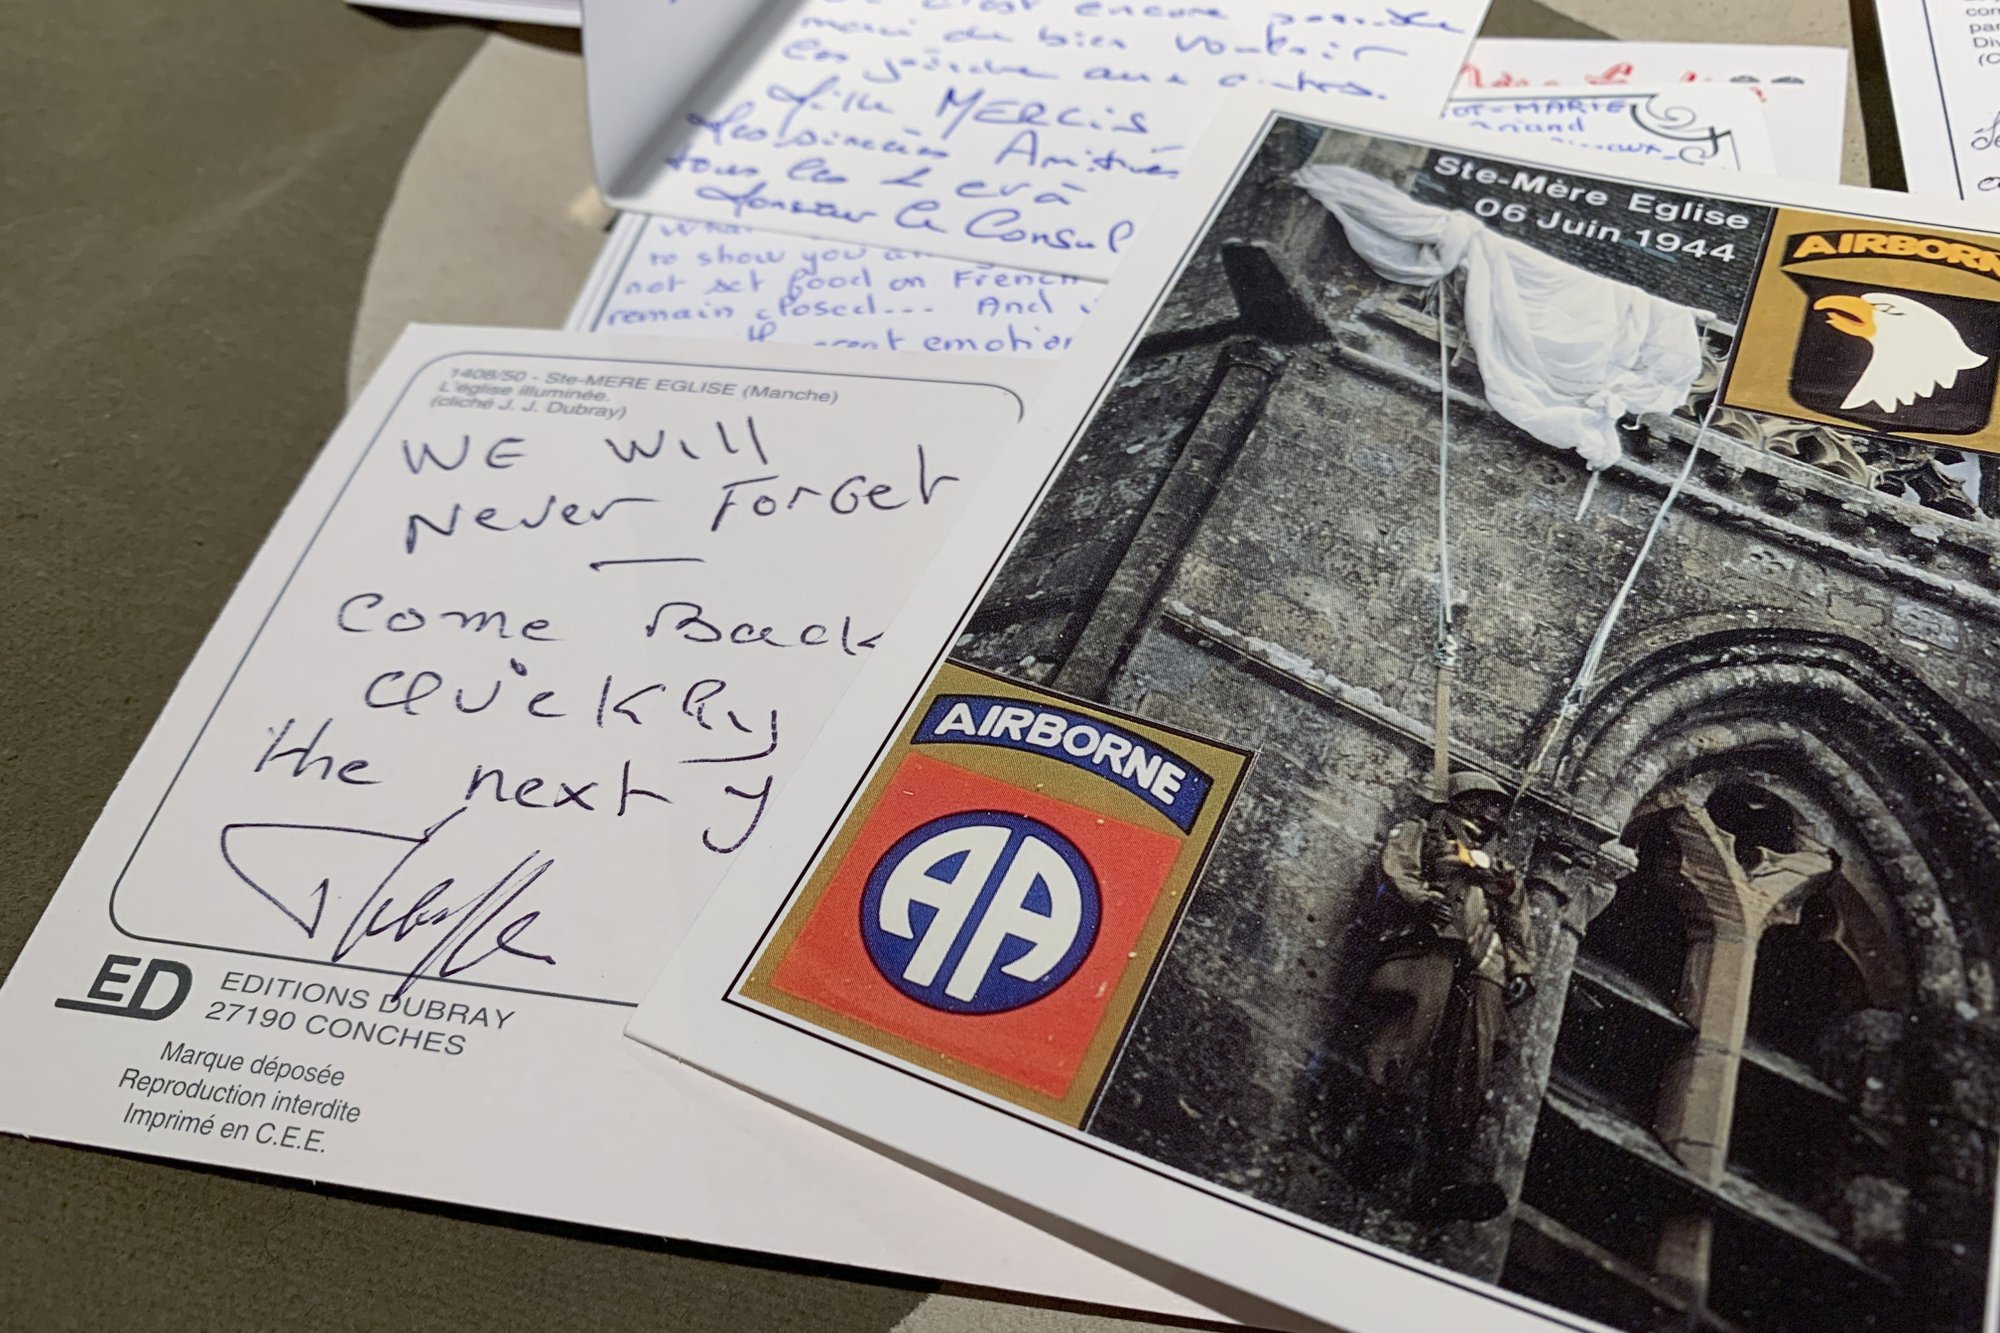 c'est encore
merci de bien vouloir
les joindre aux autres.
Mille MERCIS
Les sincères Amitiés
tous les 2 et à
Monsieur le Consul
to show you
not set food on French
remain closed... And
emotion
OT-MARIE
Ste-Mère Eglise
06 Juin 1944
AIRBORN
1408/50 - Ste-MERE EGLISE (Manche)
L'église illuminée.
(cliché J. J. Dubray)
WE Will
Never Forget
—
Come Back
Quickly
the next y
AIRBORNE
AA
ED EDITIONS DUBRAY
27190 CONCHES
Marque déposée
Reproduction interdite
Imprimé en C.E.E.
com
par
Div
(C